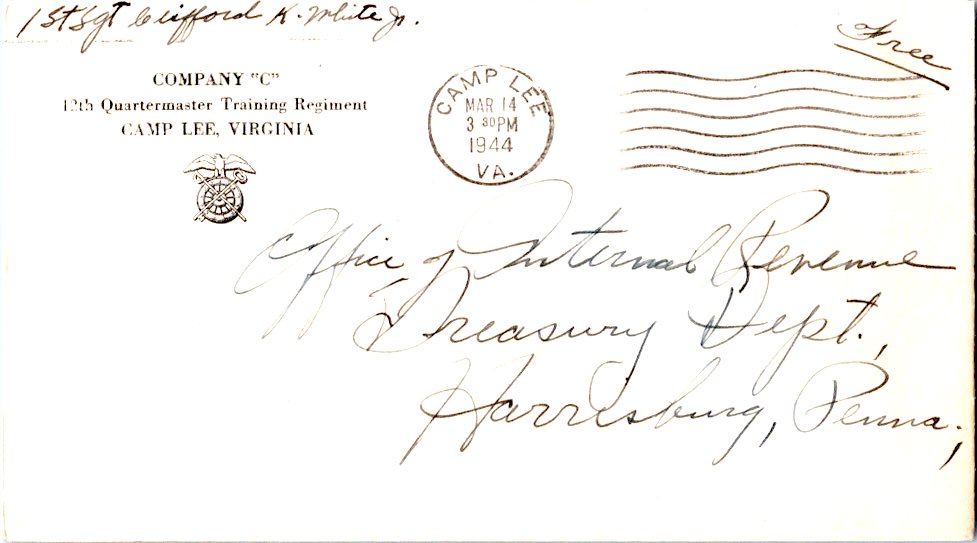 1st Sgt Clifford K. White Jr.
Free
COMPANY "C"
12th Quartermaster Training Regiment
CAMP LEE, VIRGINIA
CAMP LEE
MAR 14
3 30 PM
1944
VA.
Office of Internal Revenue
Treasury Dept.,
Harrisburg, Penna.,